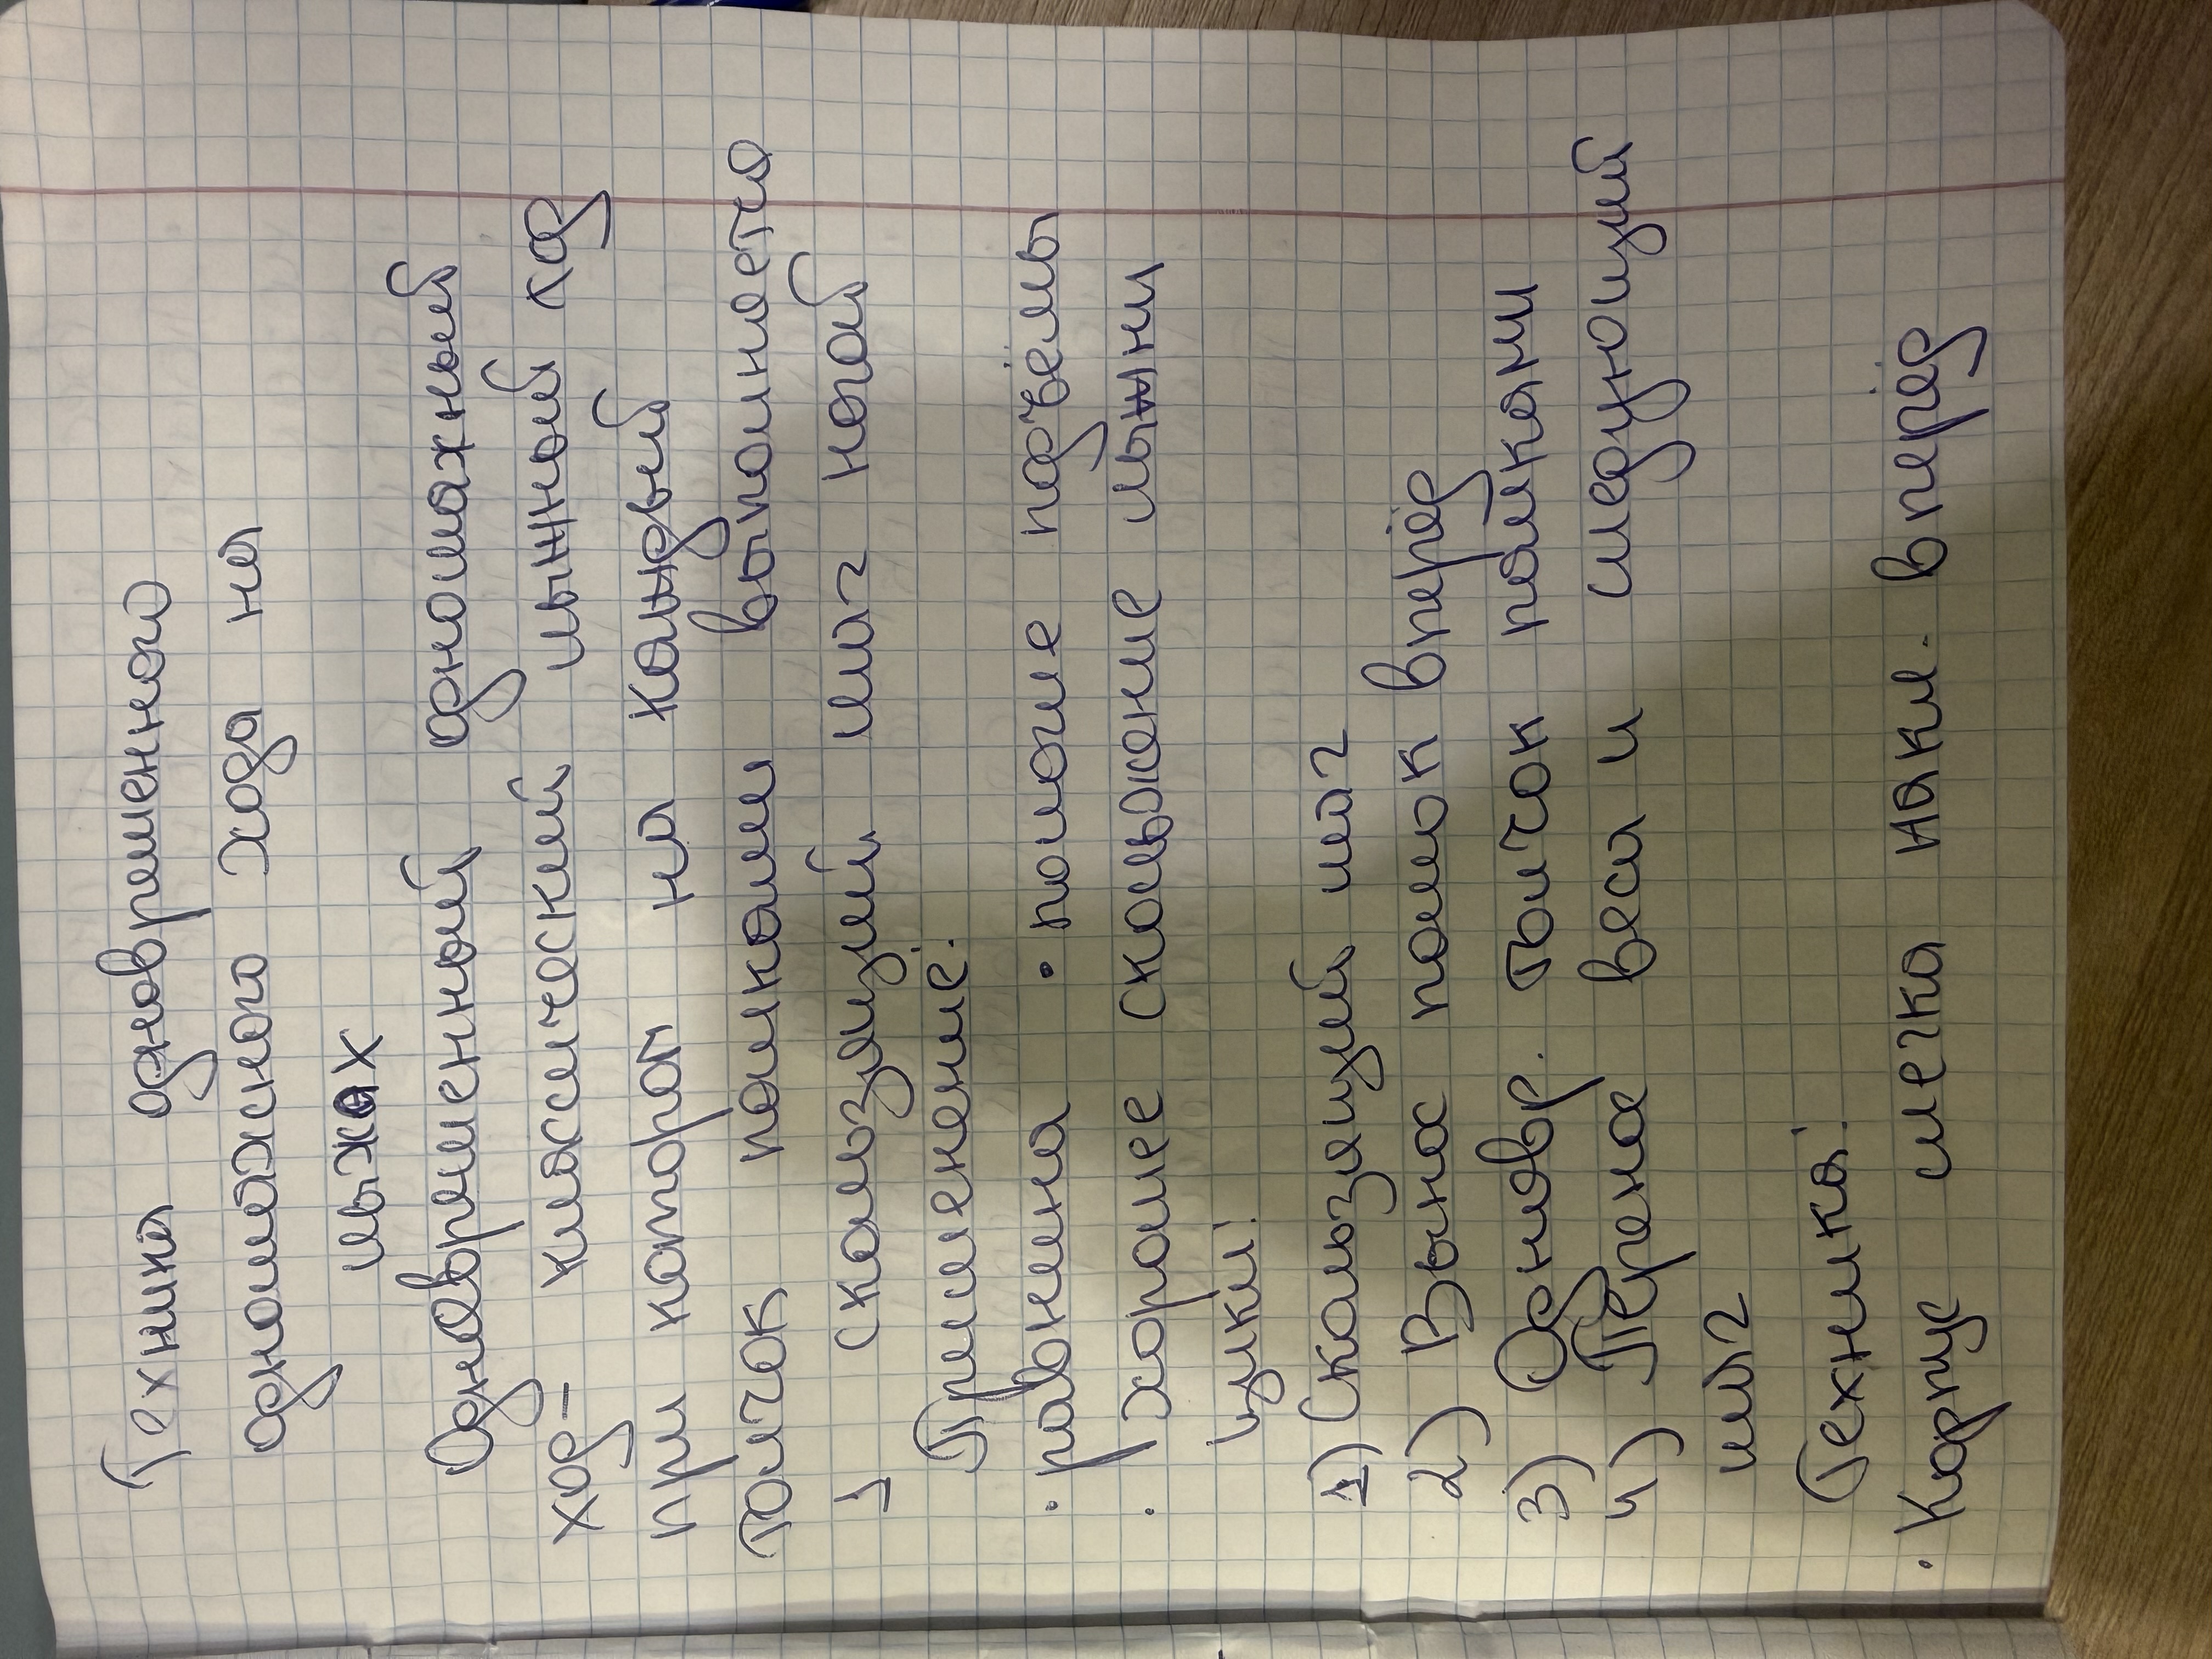 Техника одновременного
одношажного хода на
лыжах
Одновременный одношажный
ход- классический лыжный ход
при котором на каждый
толчок палками выполняется
1 скользящий шаг ногой
Применение:
· равнина · пологие подъёмы
· хорошее скольжение лыжни
Цикл:
1) Скользящий шаг
2) Вынос палок вперёд
3) Одновр. толчок палками
4) Перенос веса и следующий
шаг
Техника:
· Корпус слегка накл. вперёд